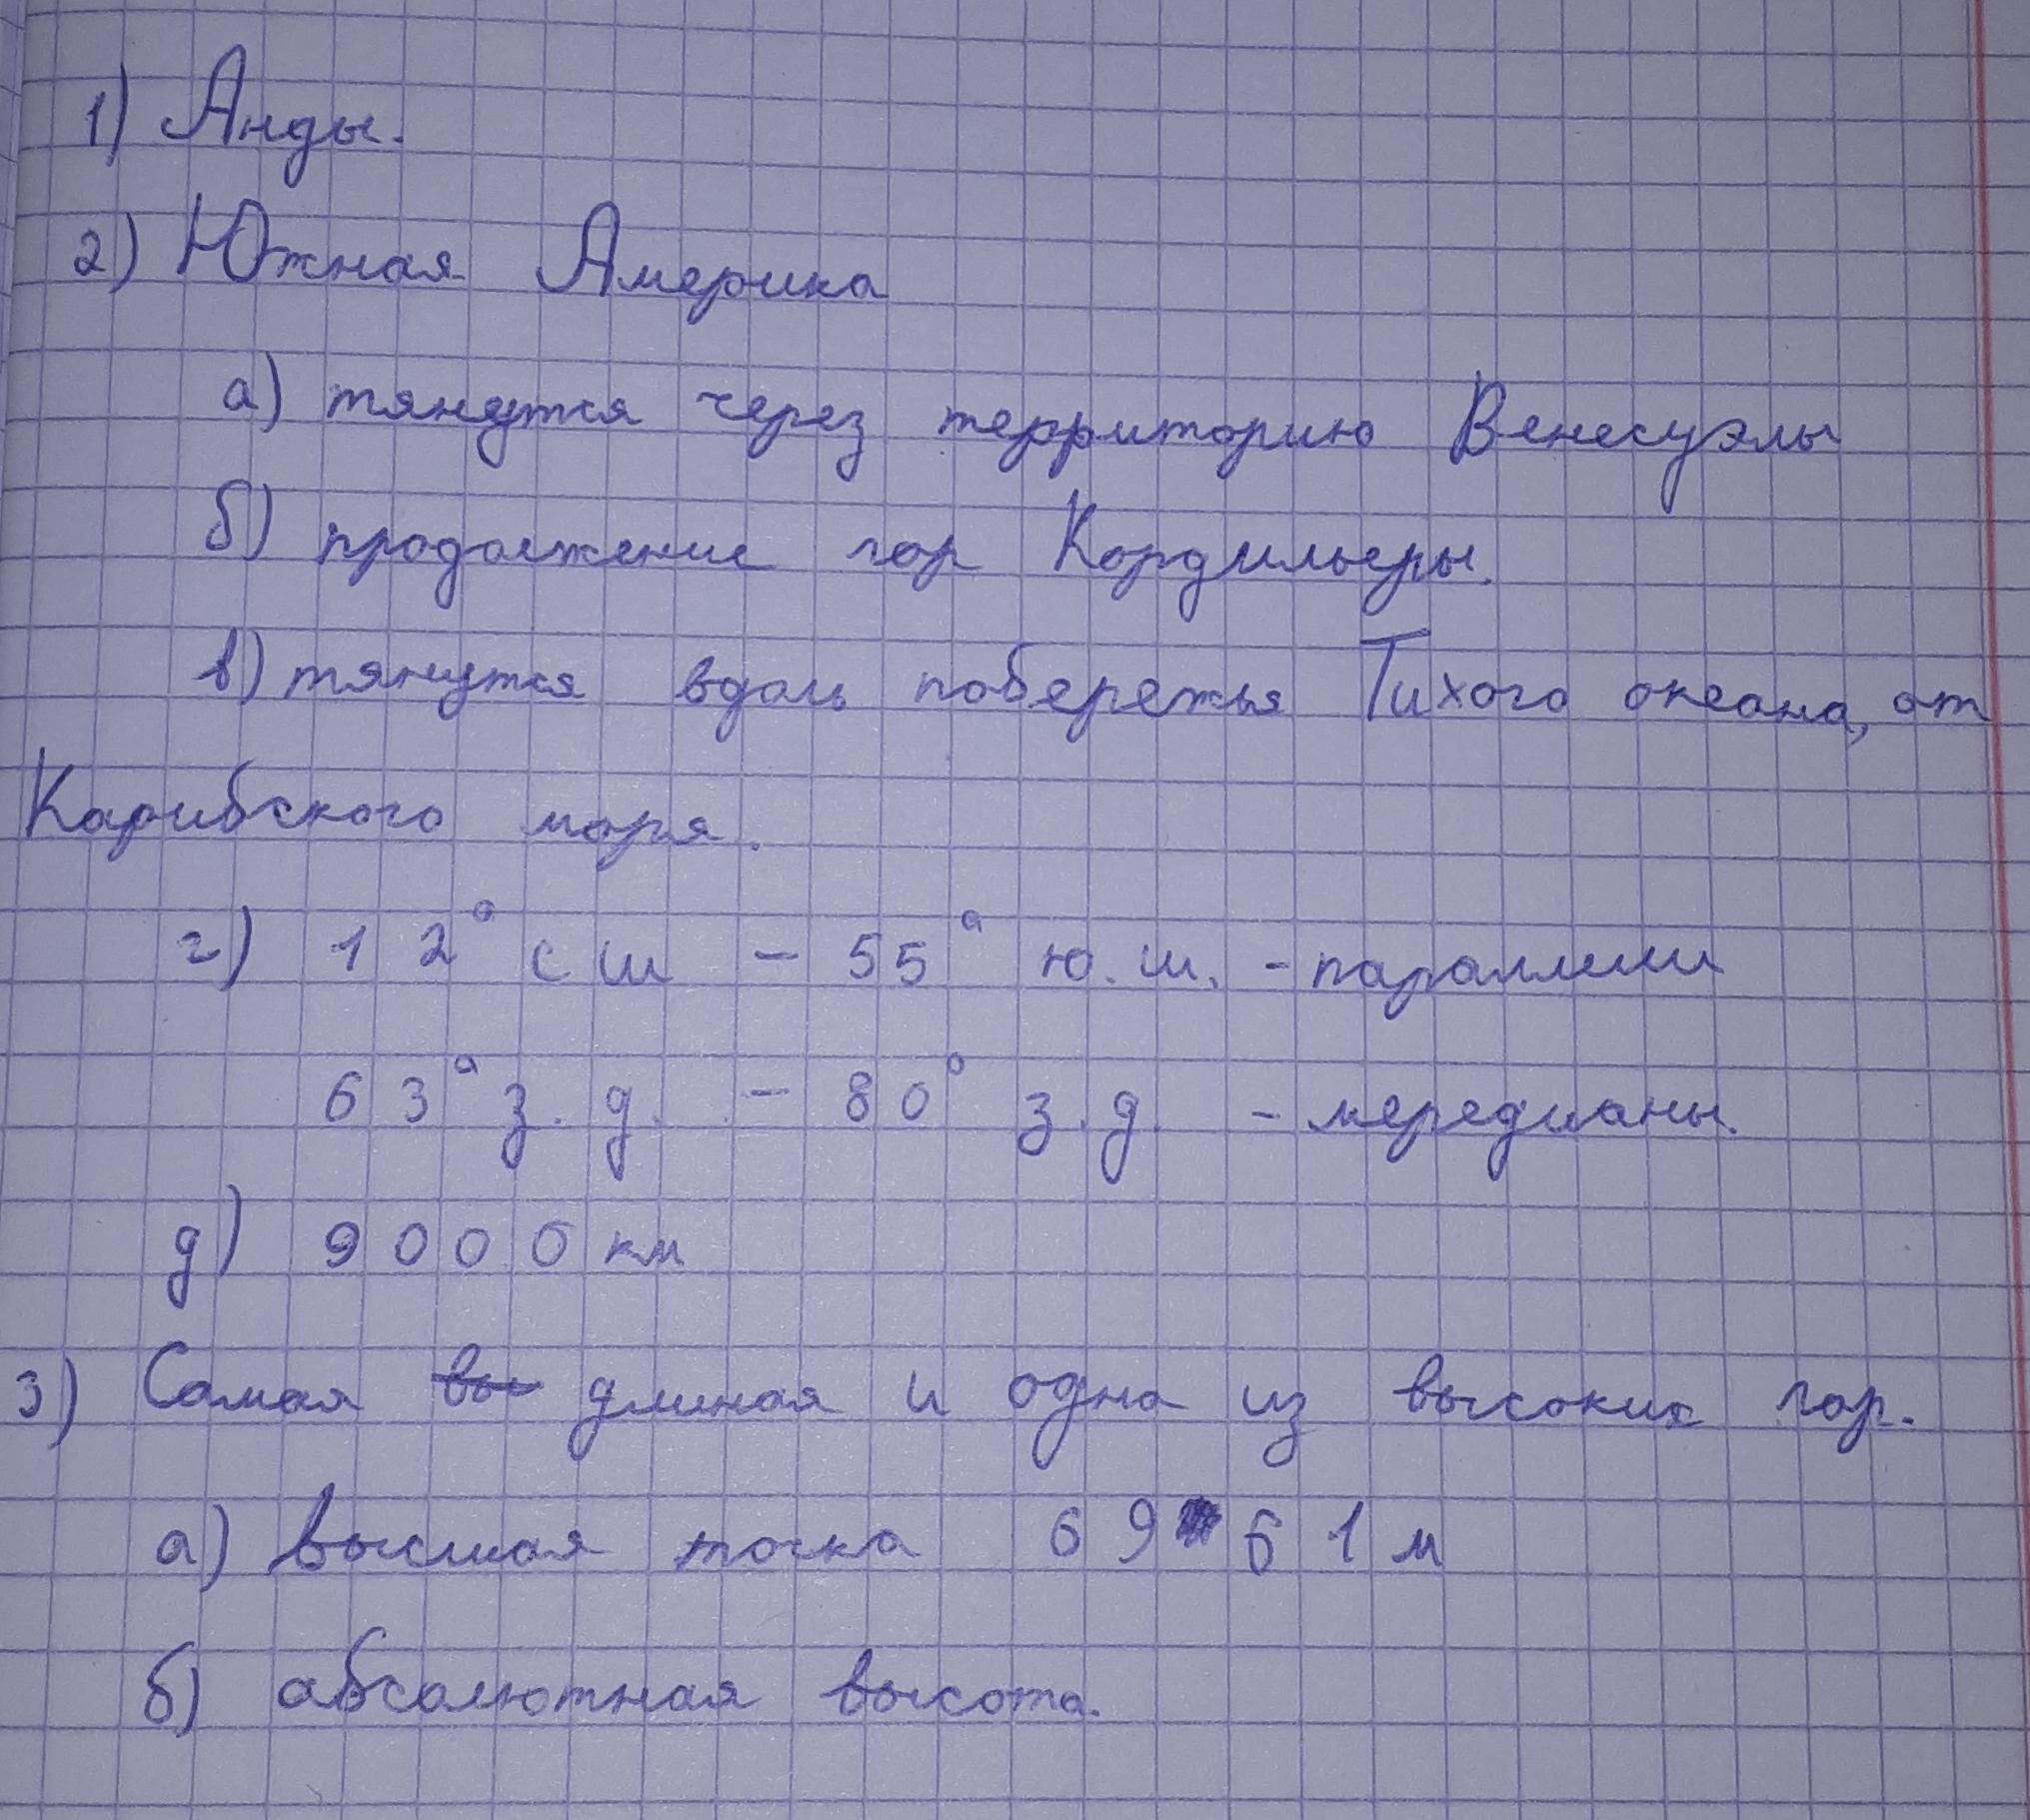 1) Анды.
2) Южная Америка
а) тянутся через территорию Венесуэлы
б) продолжение гор Кордильеры.
в) тянутся вдоль побережья Тихого океана, от
Карибского моря.
г) 12° с ш – 55° ю.ш. – параллели
63° з.д. – 80° з.д. – мередианы.
д) 9000 км
3) Самая вы длиная и одна из высоких гор.
а) высшая точка 6961 м
б) абсолютная высота.